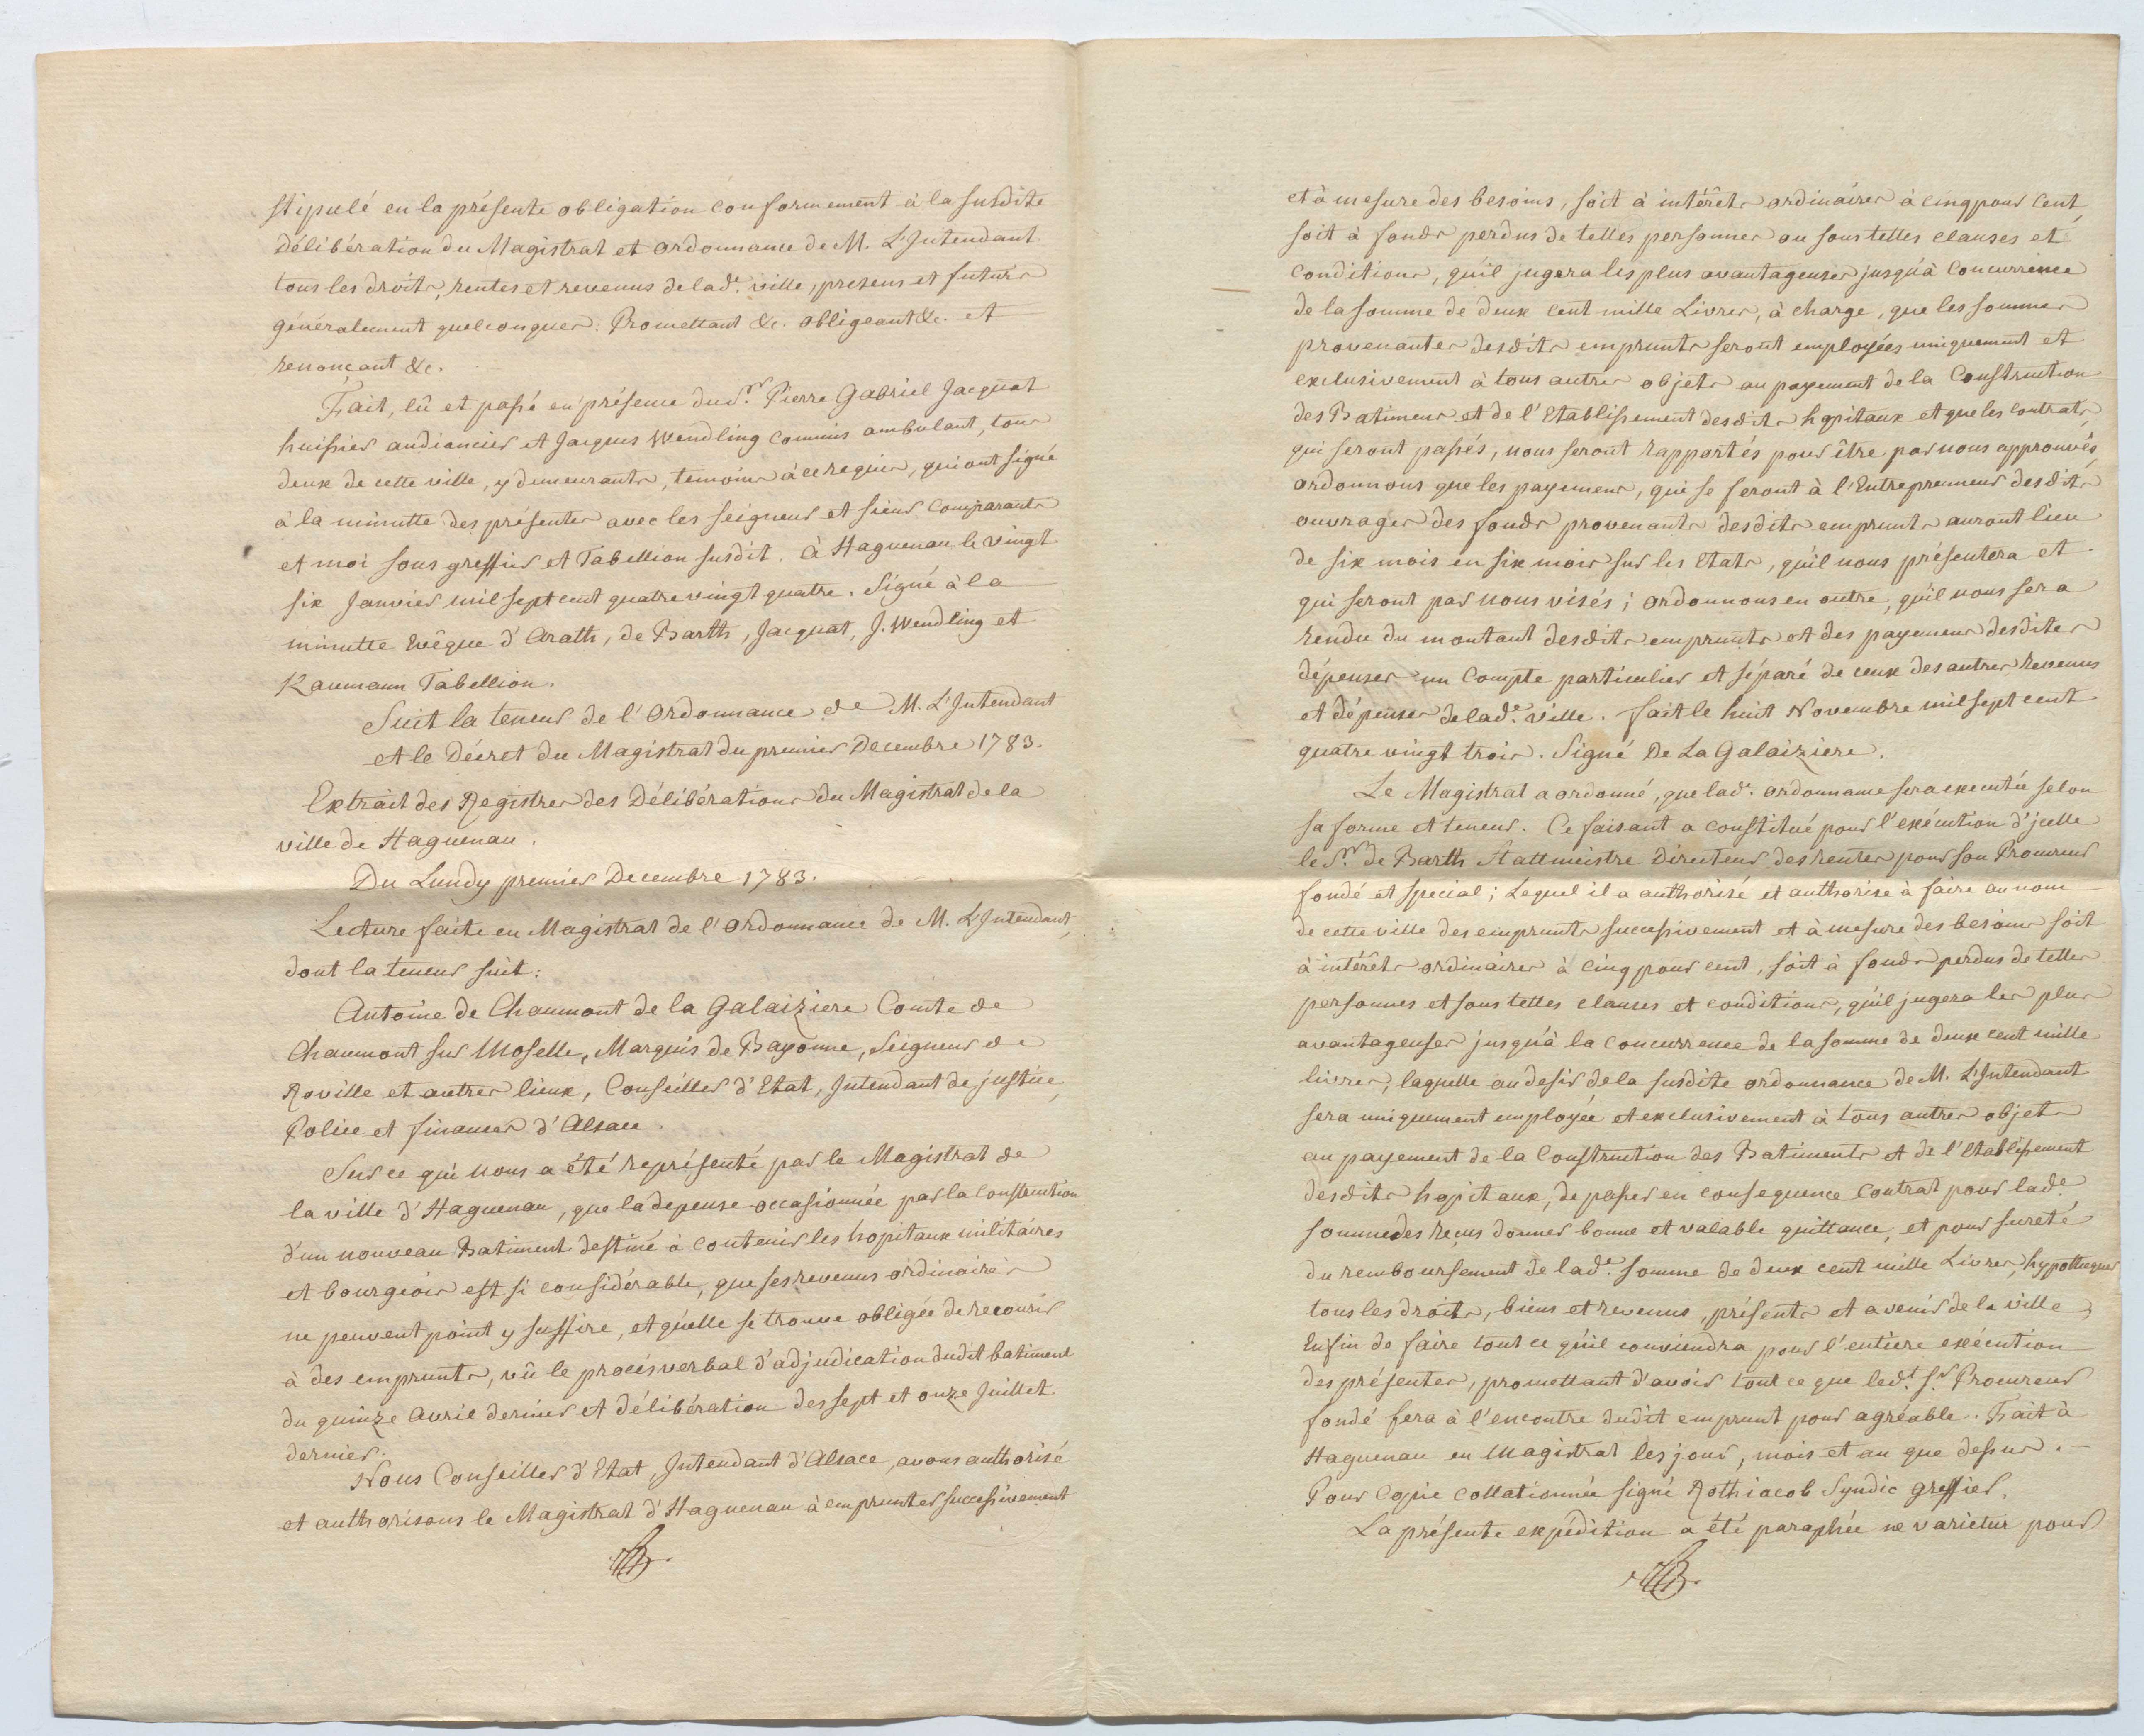 stipulé en la présente obligation conformement à la susdite
délibération du Magistrat et ordonnance de M. L'Intendant
tous les droits, rentes et revenus de lad.e ville, presens et futurs
généralement quelconques: Promettant &c. obligeant &c. et
renonçant &c.
Fait, lû et passé en présence du Sr. Pierre Gabriel Jacquat
huissier audiancier et Jacques Wendling commis ambulant, tous
deux de cette ville, y demeurants, temoins à ce requis, qui ont signé
à la minutte des présentes avec les seigneur et sieur Comparants
et moi sous greffier et Tabellion susdit. à Haguenau le vingt
six Janvier mil sept cent quatre vingt quatre. Signé à la
minutte Evêque d'Arath, de Barth, Jacquat, J. Wendling et
Kaumann Tabellion.
Suit la teneur de l'Ordonnance de M. L'Intendant
et le Décret du Magistrat du premier Decembre 1783.
Extrait des Registres des Délibérations du Magistrat de la
ville de Haguenau.
Du Lundy premier Decembre 1783.
Lecture faite en Magistrat de l'Ordonnance de M. L'Intendant,
dont la teneur suit:
Antoine de Chaumont de la Galaiziere Comte de
Chaumont sur Moselle, Marquis de Bayonne, Seigneur de
Roville et autres lieux, Conseiller d'Etat, Intendant de justice,
Police et finances d'Alsace.
Sur ce qui nous a été représenté par le Magistrat de
la ville d'Haguenau, que la depense occasionnée par la Construction
d'un nouveau Batiment destiné à contenir les hopitaux militaires
et bourgeois est si considérable, que ses revenus ordinaires
ne peuvent point y suffire, et qu'elle se trouve obligée de recourir
à des emprunts, vû le procès verbal d'adjudication dudit batiment
du quinze Avril dernier et délibération des sept et onze Juillet
dernier.
Nous Conseiller d'Etat, Intendant d'Alsace, avons authorisé
et authorisons le Magistrat d'Haguenau à emprunter successivement
et à mesure des besoins, soit à intérêts ordinaires à cinq pour cent,
soit à fonds perdus de telles personnes ou sous telles clauses et
conditions, qu'il jugera les plus avantageuses jusqu'à concurrence
de la somme de deux cent mille Livres, à charge, que les sommes
provenantes desdits emprunts seront employées uniquement et
exclusivement à tous autres objets au payement de la Construction
des Batimens et de l'Etablissement desdits hopitaux et que les contrats,
qui seront passés, nous seront rapportés pour être par nous approuvés,
ordonnons que les payemens, qui se feront à l'Entrepreneur desdits
ouvrages des fonds provenants desdits emprunts auront lieu
de six mois en six mois sur les Etats, qu'il nous présentera et
qui seront par nous visés; ordonnons en outre, qu'il nous sera
rendu du montant desdits emprunts et des payemens desdites
dépenses un Compte particulier et séparé de ceux des autres revenus
et dépenses de lad.e ville. fait le huit Novembre mil sept cent
quatre vingt trois. Signé De La Galaiziere.
Le Magistrat a ordonné, que lad.e ordonnance sera executée selon
sa forme et teneur. Ce faisant a constitué pour l'exécution d'jcelle
le Sr. de Barth Stattmeistre Directeur des rentes pour son Procureur
fondé et special; Lequel il a authorisé et authorise à faire au nom
de cette ville des emprunts successivement et à mesure des besoins soit
à intérêts ordinaires à cinq pour cent, soit à fonds perdus de telles
personnes et sous telles clauses et conditions, qu'il jugera les plus
avantageuses jusqu'à la concurrence de la somme de deux cent mille
livres, laquelle au desir de la susdite ordonnance de M. L'Intendant
sera uniquement employée et exclusivement à tous autres objets
au payement de la Construction des Batiments et de l'Etablissement
desdits hopitaux, de passer en consequence Contrat pour lad.e
somme des reçus donner bonne et valable quittance, et pour sureté
du remboursement de lad.e somme de deux cent mille Livres, hypothequer
tous les droits, biens et revenus, présents et avenir de la ville,
Enfin de faire tout ce qu'il conviendra pour l'entiere exécution
des présentes, promettant d'avoir tout ce que led.t Sr. Procureur
fondé fera à l'encontre dudit emprunt pour agréable. Fait à
Haguenau en Magistrat les jour, mois et an que dessus.
Pour Copie collationnée signé Rothiacob Syndic greffier.
La présente expédition a été paraphée ne varietur pour